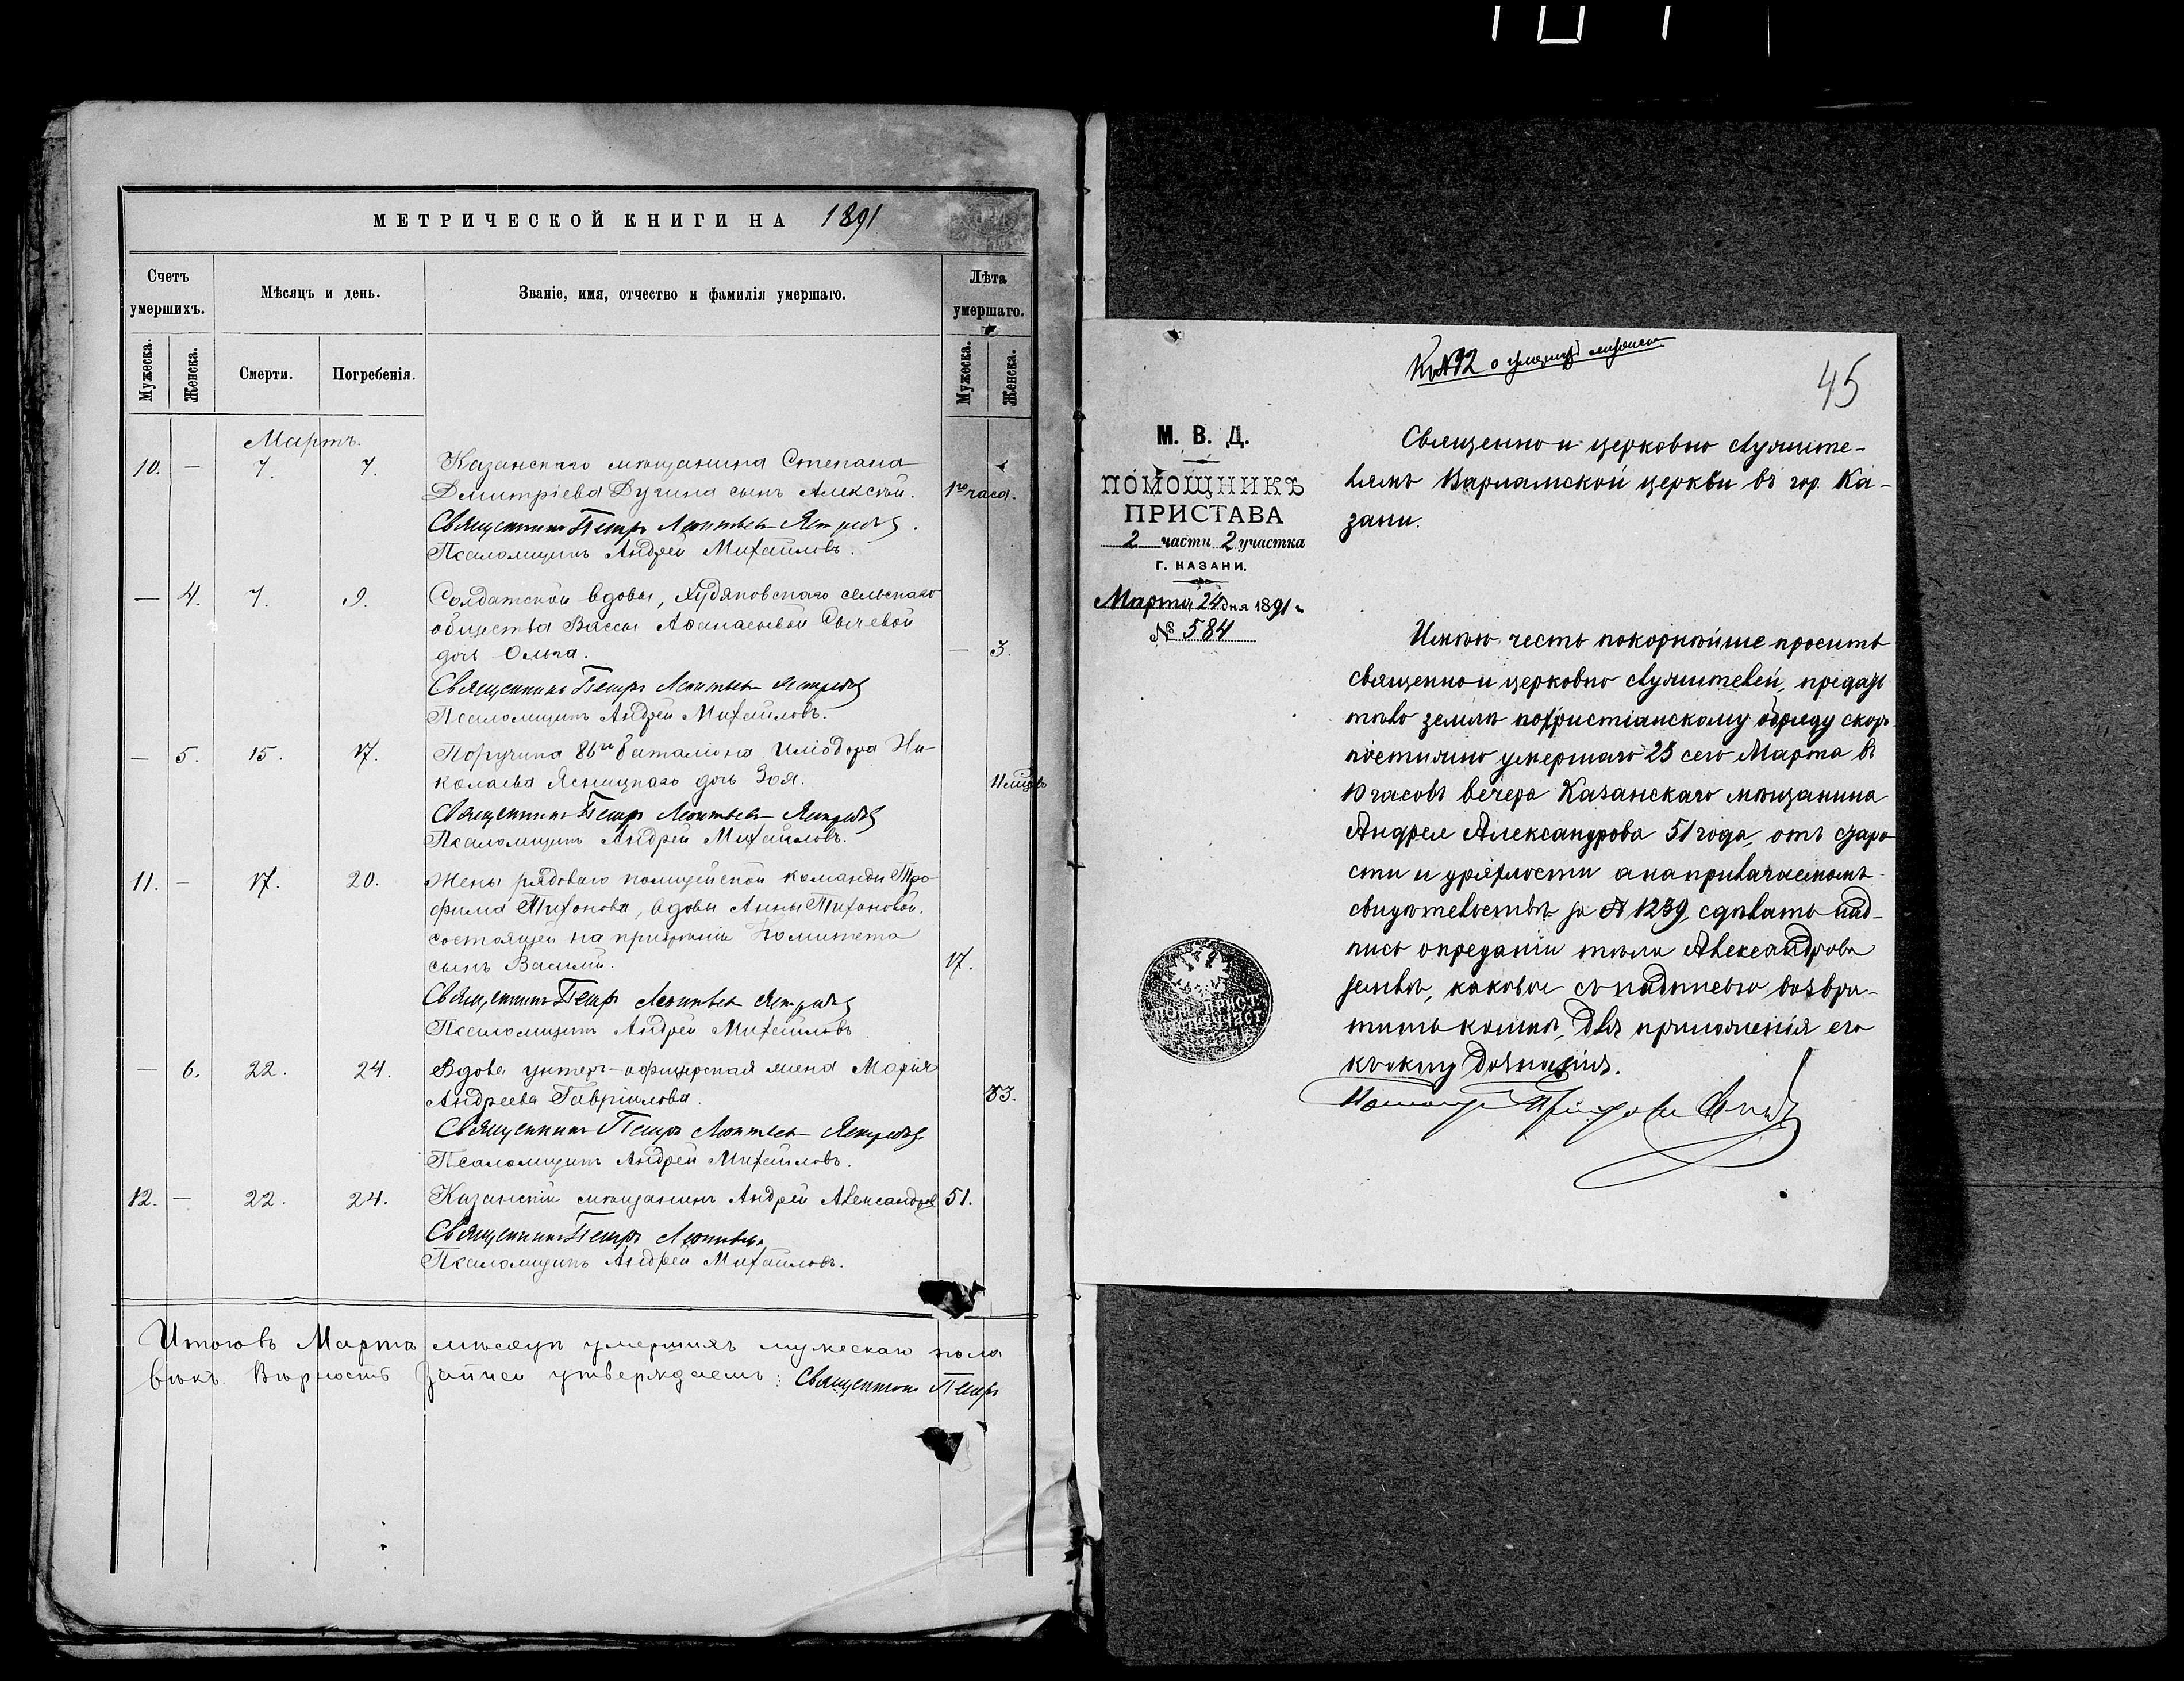 МЕТРИЧЕСКОЙ КНИГИ НА 1891
Счетъ умершихъ.
Мѣсяцъ и день.
Званіе, имя, отчество и фамилія умершаго.
Лѣта умершаго.
Мужеска.
Женска.
Смерти.
Погребенія.
Мужеска.
Женска.
Мартъ.
10. — 7. 7. Казанскаго мѣщанина Степана
Дмитріева Дугина сынъ Алексѣй. 1го часа.
Священникъ Петръ Леонтьев
Псаломщикъ Андрей Михайловъ.
— 4. 7. 9. Солдатской вдовы, Худяковскаго сельскаго
общества Вассы Аѳанасьевой Сычевой
дочь Ольга. — 3.
Священникъ Петръ Леонтьев
Псаломщикъ Андрей Михайловъ.
— 5. 15. 17. Поручика 86го баталіона Иліодора Ни-
колаева Ясницкаго дочь Зоя.
Священникъ Петръ Леонтьев
Псаломщикъ Андрей Михайловъ.
11. — 17. 20. Жены рядоваго полицейской команды Тро-
фима Тихонова, вдовы Анны Тихоновой,
состоящей на призрѣніи Комитета
сынъ Василій. 17.
Священникъ Петръ Леонтьев
Псаломщикъ Андрей Михайловъ
— 6. 22. 24. Вдова унтеръ-офицерская жена Марія
Андреева Гавріилова. 53.
Священникъ Петръ Леонтьев
Псаломщикъ Андрей Михайловъ.
12. — 22. 24. Казанскій мѣщанинъ Андрей Александров 51.
Священникъ Петръ Леонтьев
Псаломщикъ Андрей Михайловъ.
Итого въ Марта мѣсяцѣ умершихъ мужескаго пола
вѣкъ. Вѣрность записи утверждаемъ: Священникъ Петръ
Къ №12 о
45
М. В. Д.
ПОМОЩНИКЪ
ПРИСТАВА
2 части 2 участка
Г. КАЗАНИ.
Марта 24 дня 1891 г.
№ 584
Священно и церковно служите-
лямъ Варламской церкви въ гор. Ка-
зани.
Имѣю честь покорнѣйше просить
священно и церковно служителей, предать
тѣло землѣ по христіанскому обряду скоро-
постижно умершаго 23 сего Марта въ
10 часовъ вечера Казанскаго мѣщанина
Андрея Александрова 51 года, отъ старо-
сти и дряхлости а на прилагаемомъ
свидѣтельствѣ за № 1239, сдѣлать над-
пись о преданіи тѣла Александрова
землѣ, каковое съ надписью возвра-
тить ко мнѣ, для приложенія его
къ дознанія.